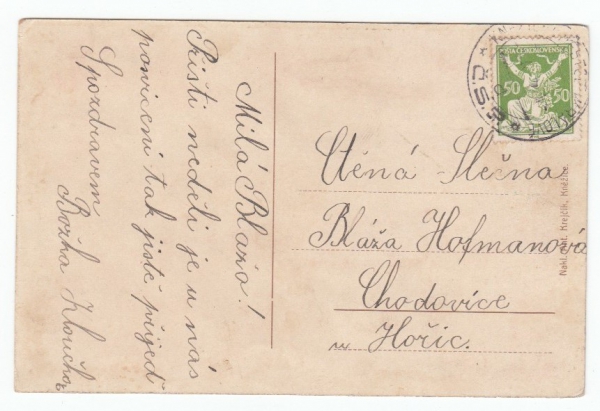 Milá Blažo!
Přisti neděli je u nás
posvíceni tak jistě přijeď
Spozdravem
Božka
Ctěná Slečna
Bláža Hofmanová
Chodovice
Hořic.
POŠTA ČESKOSLOVENSKÁ
50 50
Nakl. fot. Krejčík, Kněžice.